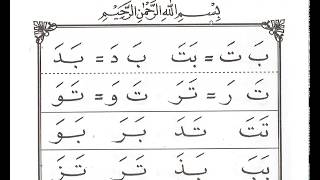 بِسْمِ اللهِ الرَّحْمٰنِ الرَّحِيْمِ
بَ تَ = بَتَ بَ دَ = بَدَ
تَ رَ = تَرَ تَ وَ = تَوَ
تَتَ تَدَ بَرَ بَوَ
بَبَ بَذَ تَرَ تَزَ